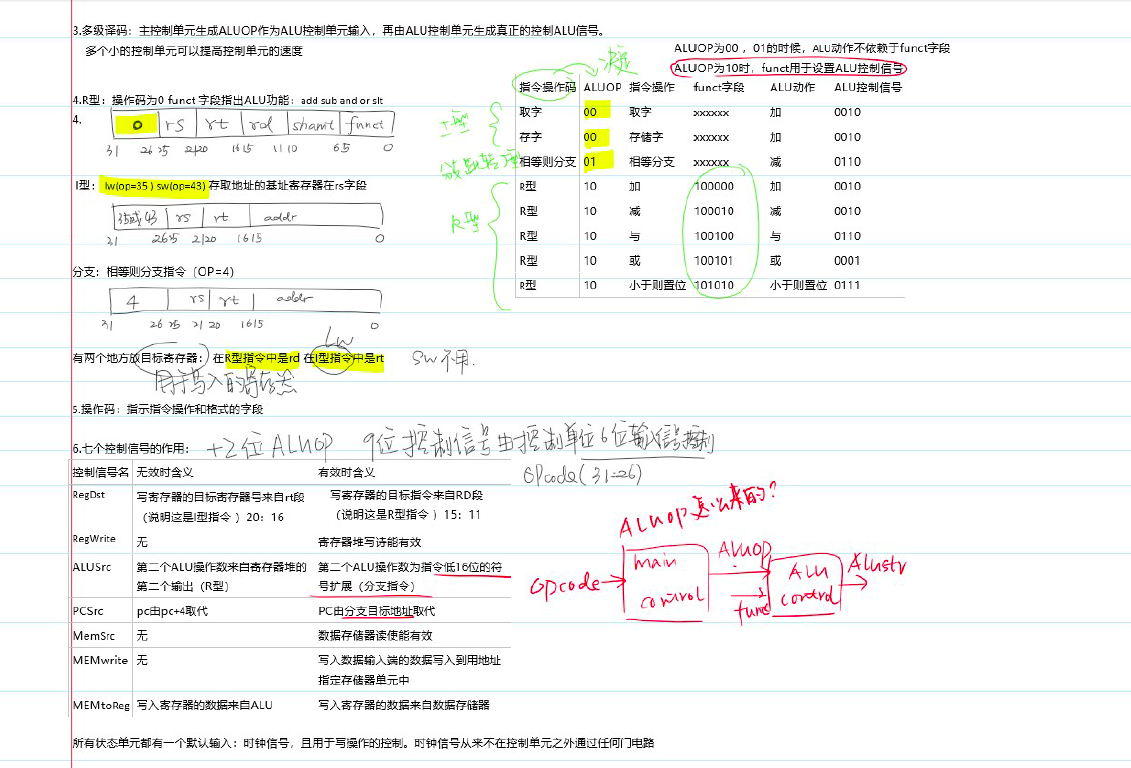 3.多级译码：主控制单元生成ALUOP作为ALU控制单元输入，再由ALU控制单元生成真正的控制ALU信号。
多个小的控制单元可以提高控制单元的速度
ALUOP为00，01的时候，ALU动作不依赖于funct字段
ALUOP为10时，funct用于设置ALU控制信号
决定
指令操作码 ALUOP 指令操作 funct字段 ALU动作 ALU控制信号
取字 00 取字 xxxxxx 加 0010
存字 00 存储字 xxxxxx 加 0010
相等则分支 01 相等分支 xxxxxx 减 0110
R型 10 加 100000 加 0010
R型 10 减 100010 减 0010
R型 10 与 100100 与 0110
R型 10 或 100101 或 0001
R型 10 小于则置位 101010 小于则置位 0111
I型
R型
4.R型：操作码为0 funct 字段指出ALU功能：add sub and or slt
4.
0 rs rt rd shamt funct
31 26 25 21 20 16 15 11 10 6 5 0
I型：lw(op=35 ) sw(op=43) 存取地址的基址寄存器在rs字段
35或43 rs rt addr
31 26 25 21 20 16 15 0
分支：相等则分支指令（OP=4）
4 rs rt addr
31 26 25 21 20 16 15 0
Lw
有两个地方放目标寄存器：在R型指令中是rd 在I型指令中是rt SW不用.
用于写入的寄存器
5.操作码：指示指令操作和格式的字段
6.七个控制信号的作用： +2位ALUOP 9位控制信号由控制单位6位输入信号控制
opcode(31:26)
控制信号名 无效时含义 有效时含义
RegDst 写寄存器的目标寄存器号来自rt段 写寄存器的目标指令来自RD段
（说明这是I型指令 ）20：16 （说明这是R型指令 ）15：11
RegWrite 无 寄存器堆写诗能有效
ALUSrc 第二个ALU操作数来自寄存器堆的 第二个ALU操作数为指令低16位的符
第二个输出（R型） 号扩展（分支指令）
PCSrc pc由pc+4取代 PC由分支目标地址取代
MemSrc 无 数据存储器读使能有效
MEMwrite 无 写入数据输入端的数据写入到用地址
指定存储器单元中
MEMtoReg 写入寄存器的数据来自ALU 写入寄存器的数据来自数据存储器
ALUOP怎么来的?
opcode main control ALUOP funct ALU control
所有状态单元都有一个默认输入：时钟信号，且用于写操作的控制。时钟信号从来不在控制单元之外通过任何门电路